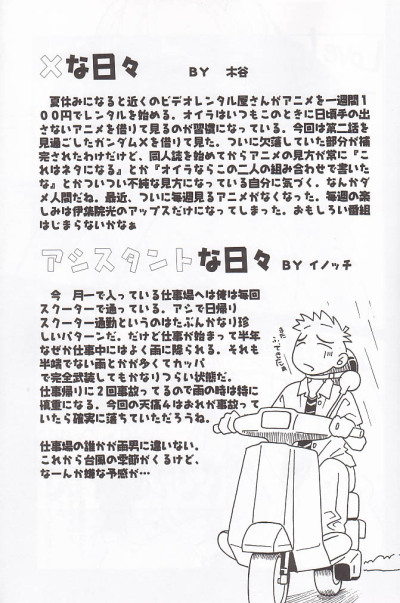 ×な日々　BY　木谷
夏休みになると近くのビデオレンタル屋さんがアニメを一週間１
００円でレンタルを始める。オイラはいつもこのときに日頃手の出
さないアニメを借りて見るのが習慣になっている。今回は第二話を
見過ごしたガンダム×を借りて見た。ついに欠落していた部分が補
完されたわけだけど、同人誌を始めてからアニメの見方が常に『こ
れはネタになる』とか『オイラならこの二人の組み合わせで書いた
な』とかついつい不純な見方になっている自分に気づく。なんかダ
メ人間だね。最近、ついに毎週見るアニメがなくなった。毎週の楽
しみは伊集院光のアップスだけになってしまった。おもしろい番組
はじまらないかなぁ
アシスタントな日々　BY イノッチ
今　月一で入っている仕事場へは俺は毎回
スクーターで通っている。アシで日帰り
スクーター通勤というのはたぶんかなり珍
しいパターンだ。だけど仕事が始まって半年
なぜか仕事中にはよく雨に降られる。それも
半端でない雨とかが多くてカッパ
で完全武装してもかなりつらい状態だ。
仕事帰りに２回事故ってるので雨の時は特に
慎重になる。今回の天痛んはおれが事故って
いたら確実に落ちていただろうね。
仕事場の誰かが雨男に違いない。
これから台風の季節がくるけど、
なーんか嫌な予感が…